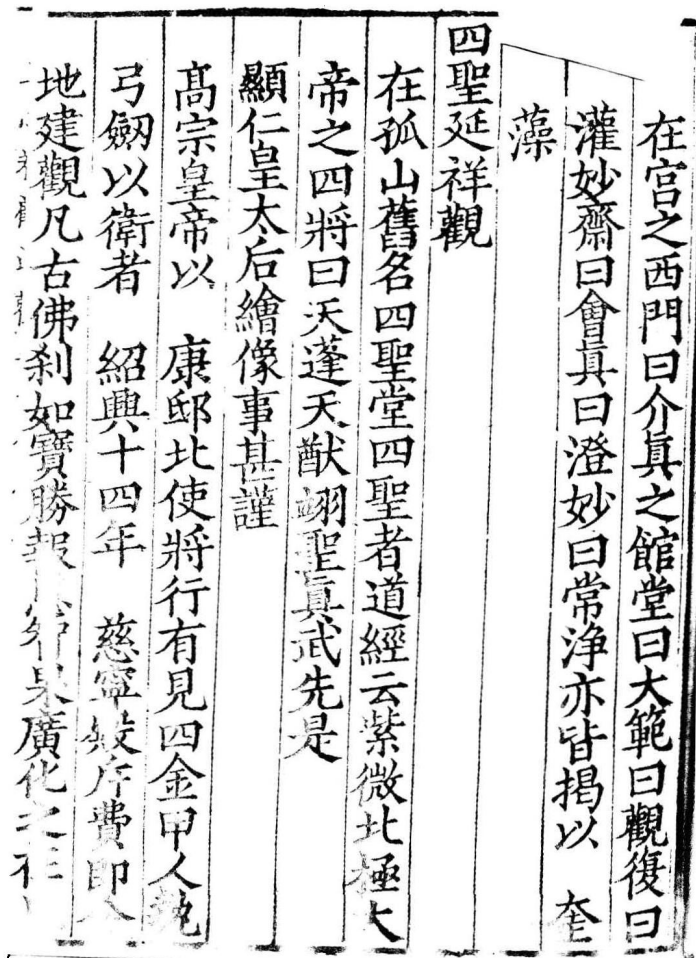 在宫之西門曰介眞之館堂曰大範曰觀復曰
灌妙齋曰會眞曰澄妙曰常浄亦皆揭以　奎
藻
四聖延祥觀
在孤山舊名四聖堂四聖者道經云紫微北極大
帝之四將曰天蓬天猷翊聖眞武先是
顯仁皇太后繪像事甚謹
髙宗皇帝以　康邸北使將行有見四金甲人執
弓劒以衛者　紹興十四年　慈寧殿斥費即今
地建觀凡古佛刹如寶勝報恩智果廣化之在